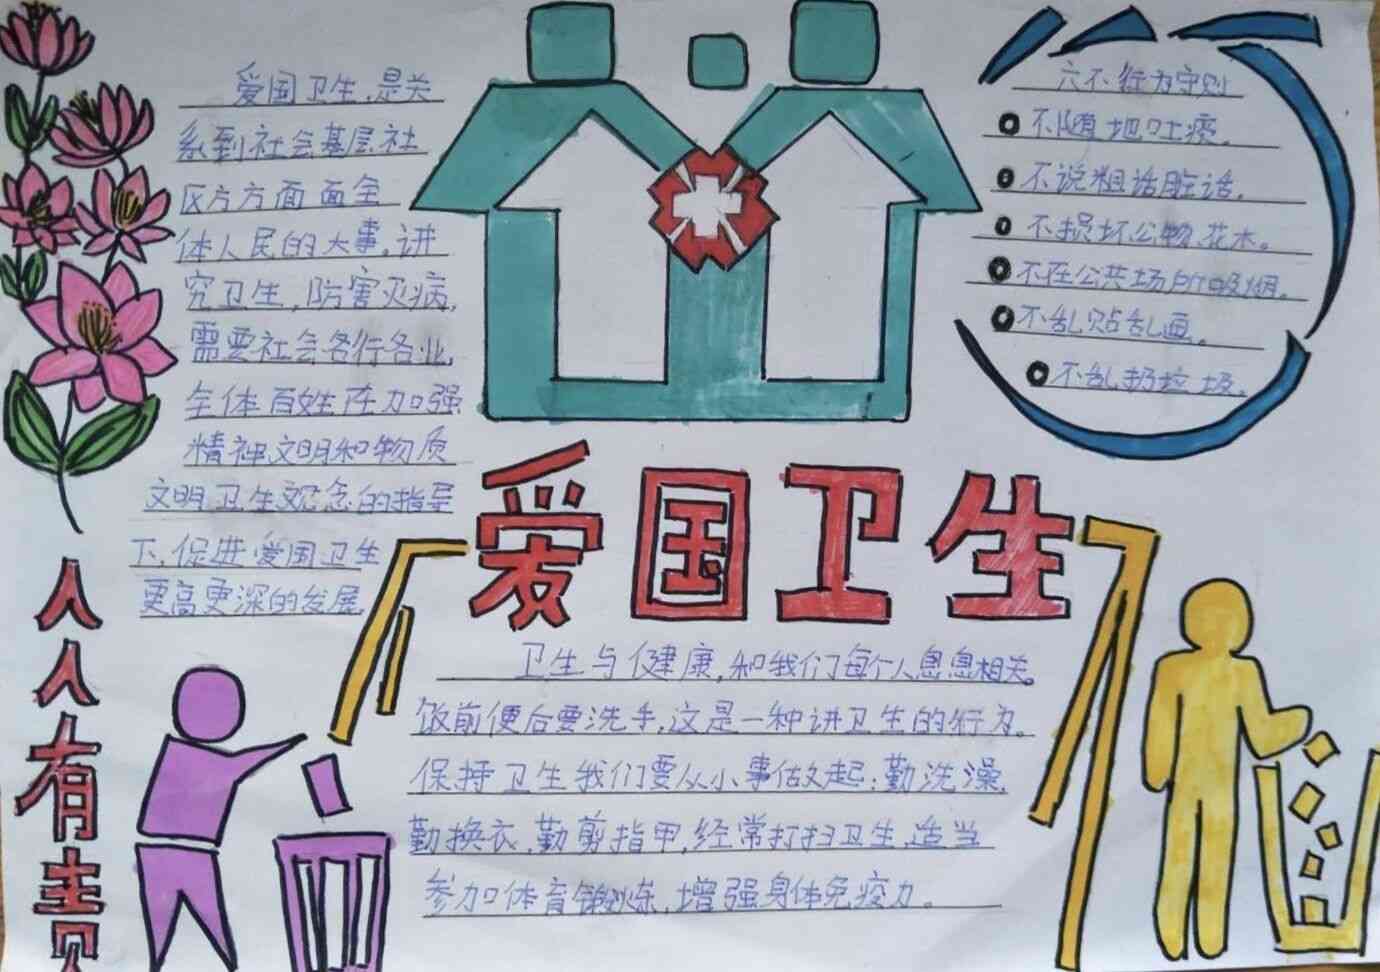 爱国卫生,是关
系到社会基层社
区方方面面全
体人民的大事。讲
究卫生,防害灭病,
需要社会各行各业,
全体百姓在加强
精神文明和物质
文明卫生观念的指导
下,促进爱国卫生
更高更深的发展。
六不行为守则
不随地吐痰。
不说粗话脏话。
不损坏公物、花木。
不在公共场所吸烟。
不乱贴乱画。
不乱扔垃圾。
爱国卫生
人人有责
卫生与健康,和我们每个人息息相关。
饭前便后要洗手,这是一种讲卫生的行为。
保持卫生我们要从小事做起:勤洗澡,
勤换衣,勤剪指甲,经常打扫卫生,适当
参加体育锻炼,增强身体免疫力。